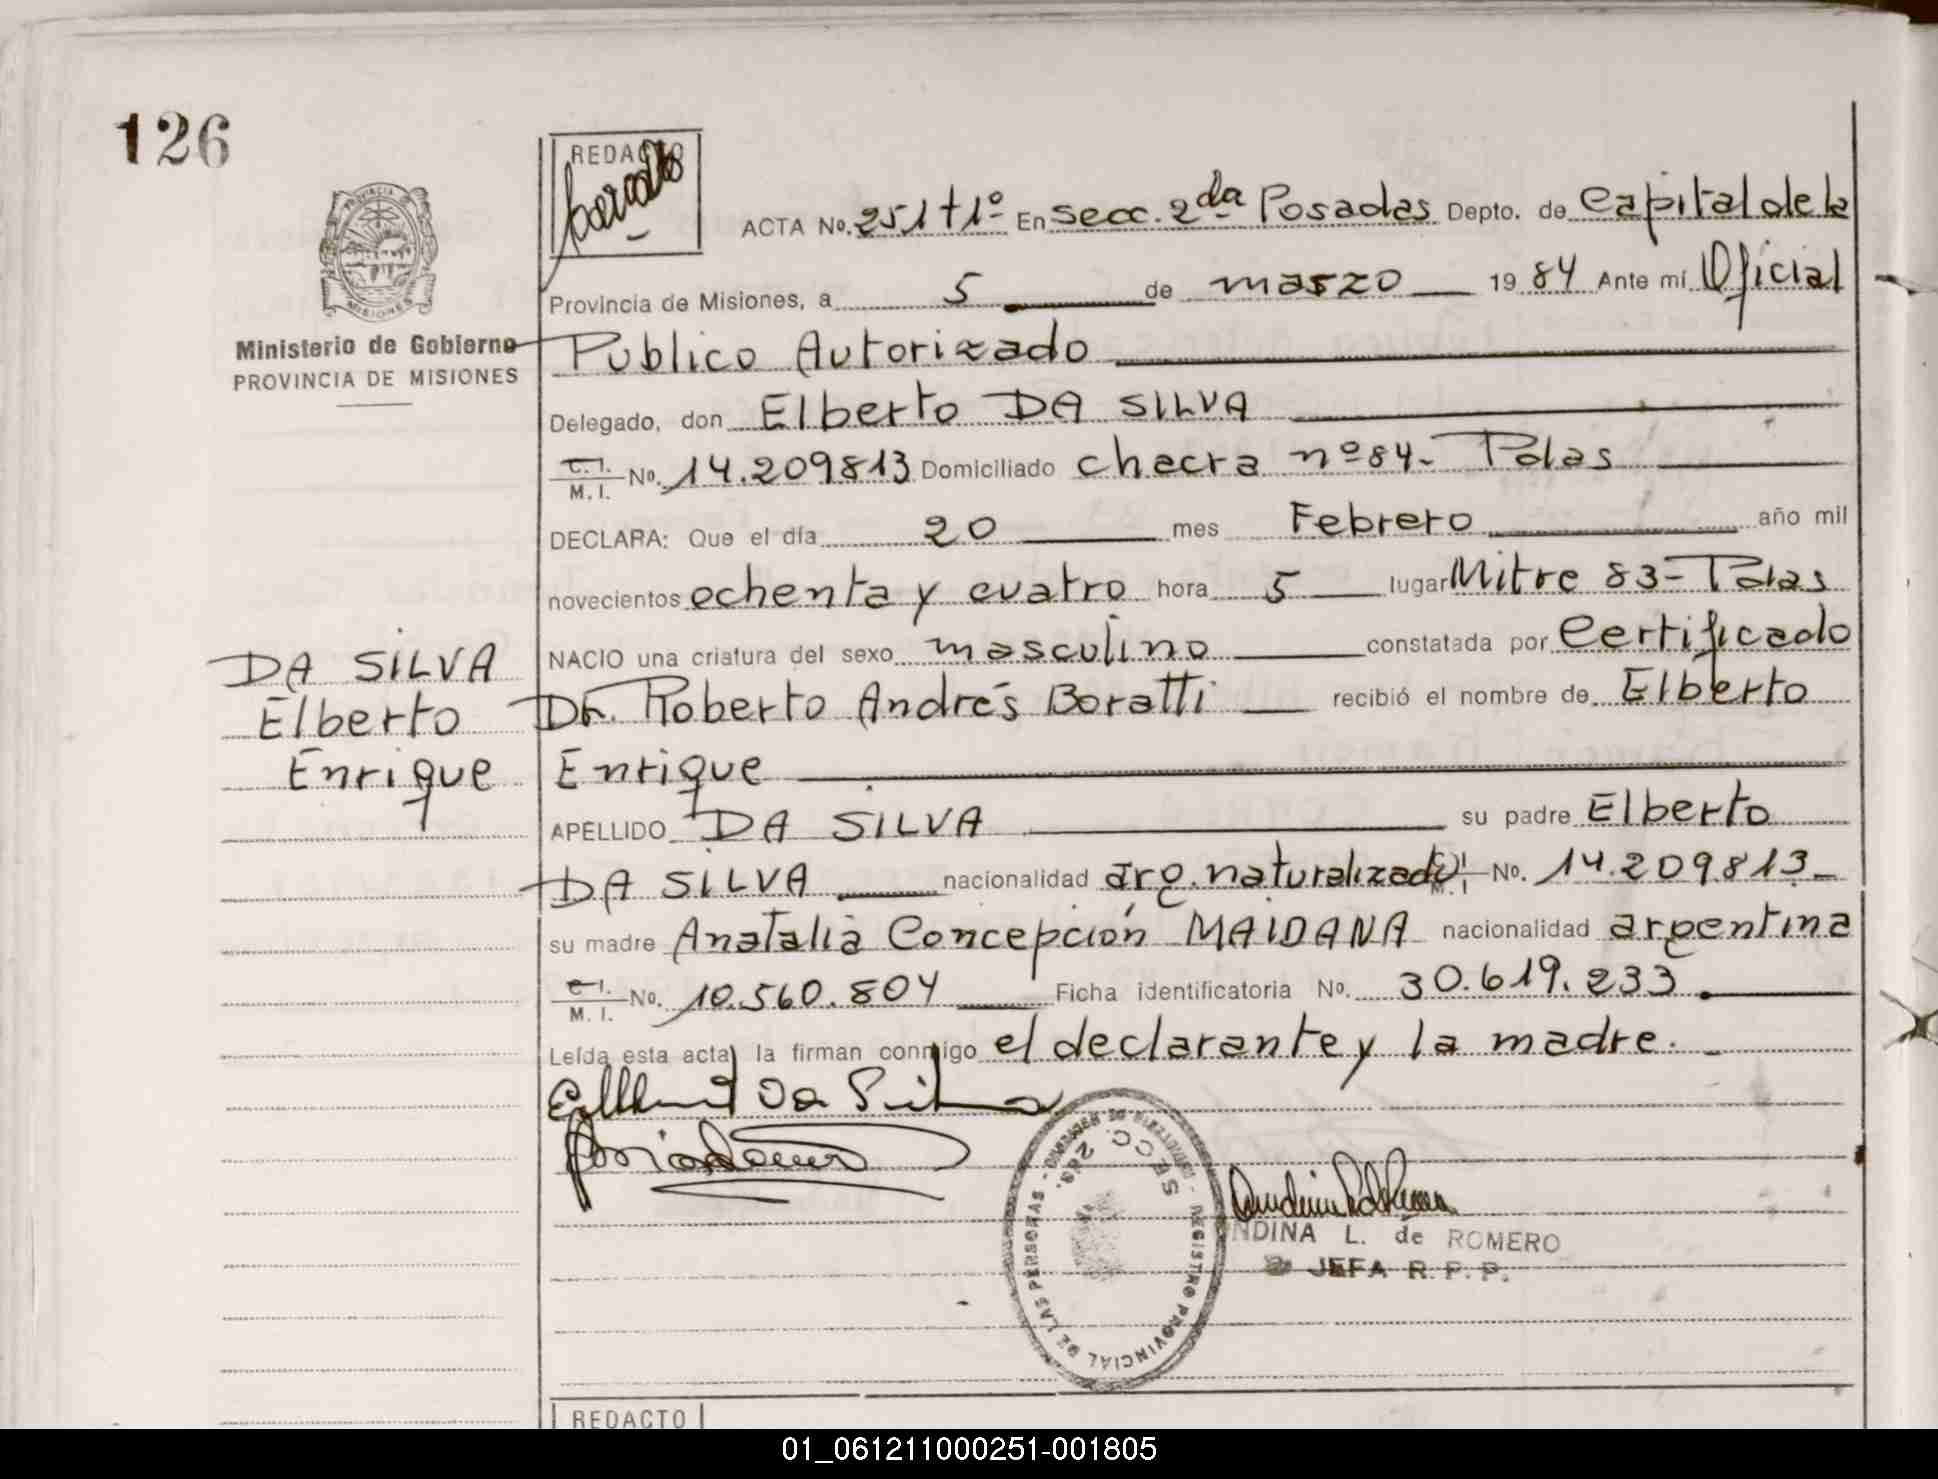 126
REDACTO
PROVINCIA
MISIONES
Ministerio de Gobierno
PROVINCIA DE MISIONES
ACTA No. 251 t 1º En secc. 2da Posadas Depto. de Capital de la
Provincia de Misiones, a 5 de marzo 19 84 Ante mí Oficial
Publico Autorizado
Delegado, don Elberto DA SILVA
C. I.
M. I. No. 14.209813 Domiciliado chacra nº84- Pdas
DECLARA: Que el día 20 mes Febrero año mil
novecientos ochenta y cuatro hora 5 lugar Mitre 83- Pdas
NACIO una criatura del sexo masculino constatada por Certificado
Dr. Roberto Andrés Boratti recibió el nombre de Elberto
Enrique
DA SILVA
Elberto
Enrique
APELLIDO DA SILVA su padre Elberto
DA SILVA nacionalidad arg. naturalizado M. I No. 14.209.813
su madre Anatalia Concepción MAIDANA nacionalidad argentina
C. I.
M. I. No. 10.560.804 Ficha identificatoria No. 30.619.233.
Leída esta acta, la firman conmigo el declarante y la madre.
Da Silva
REGISTRO PROVINCIAL DE LAS PERSONAS
SECC. 2da.
NDINA L. de ROMERO
JEFA R. P. P.
REDACTO
01_061211000251-001805